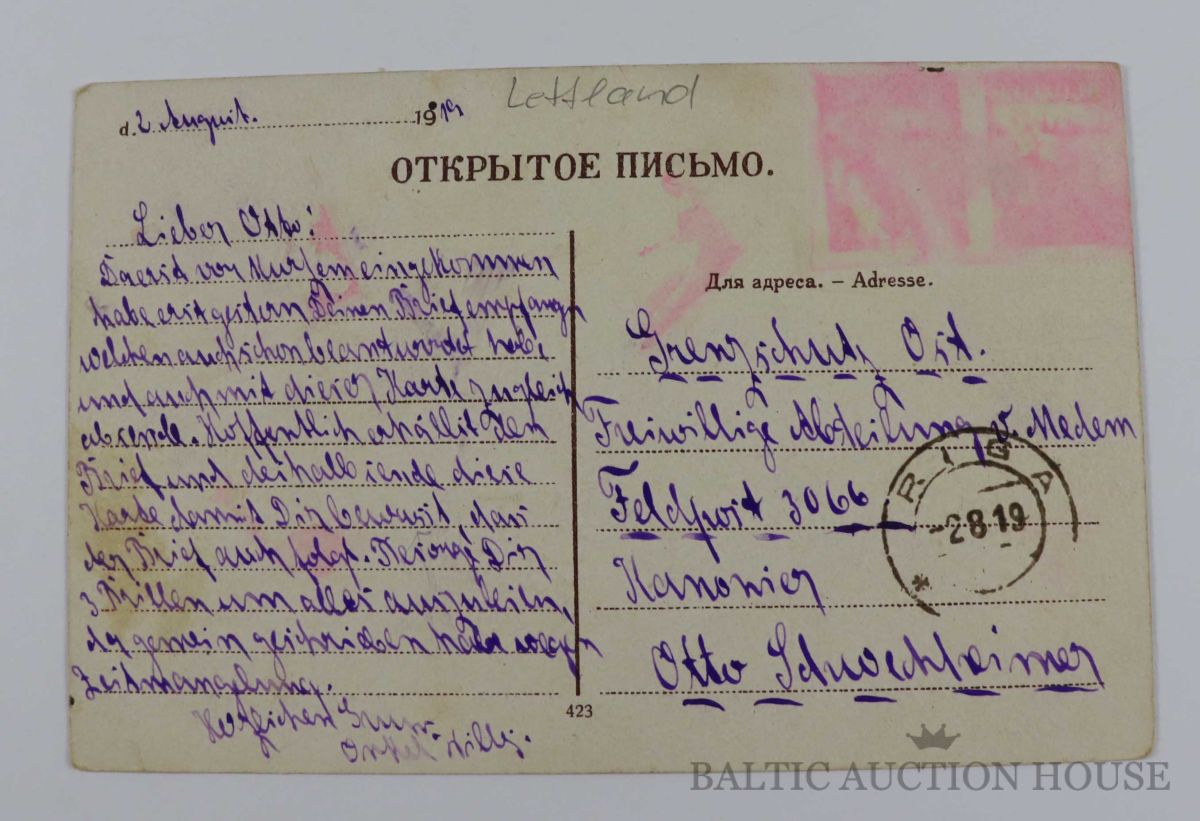 Lettland
d. 2 August. 1919
ОТКРЫТОЕ ПИСЬМО.
Lieber Otto!
Da erst vor Kurzem eingekommen
habe erst gestern Deinen Brief empfangen
welchen auch schon beantwortet habe
und auch mit dieser Karte zugleich
absende. Hoffentlich erhällst Den
Brief und deshalb sende diese
Karte damit Dir bewusst, das
der Brief auch folgt. Besorge Dir
3 Brillen um alles auszulesen,
da gemein geschrieben habe wegen
Zeitmangelung.
Herzlichen Gruss
Onkel Willy.
Для адреса. – Adresse.
Grenzschutz Ost.
Freiwillige Abteilung v. Medem
Feldpost 3066
Kanonier
Otto Schwechheimer
RIGA
-2819
423
BALTIC AUCTION HOUSE